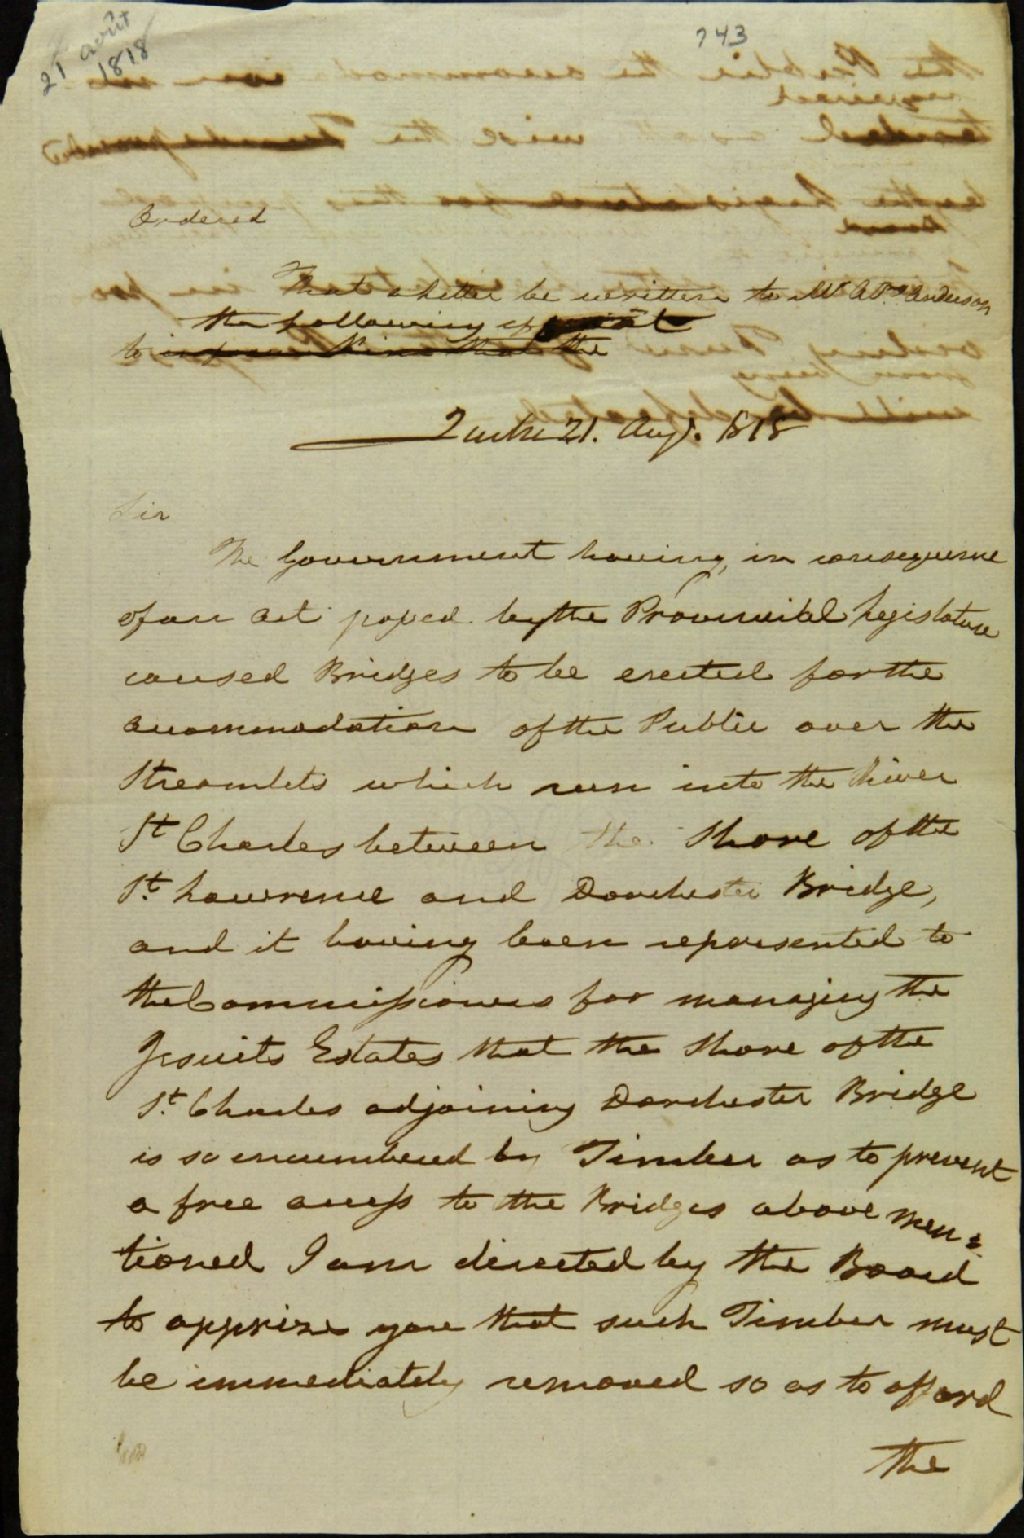 21 août
1818
743
Ordered
That a Letter be written to Mr Andw Anderson
the following effect
to inform him that the
Quebec 21. Augt. 1818
Sir
The Government having, in consequence
of an Act passed by the Provincial Legislature
caused Bridges to be erected for the
accommodation of the Public over the
Streamlets which run into the River
St Charles between the Shore of the
St. Lawrence and Dorchester Bridge,
and it having been represented to
the Commissioners for managing the
Jesuits Estates that the Shore of the
St. Charles adjoining Dorchester Bridge
is so encumbered by Timber as to prevent
a free access to the Bridges above men=
tioned I am directed by the Board
to apprize you that such Timber must
be immediately removed so as to afford
the